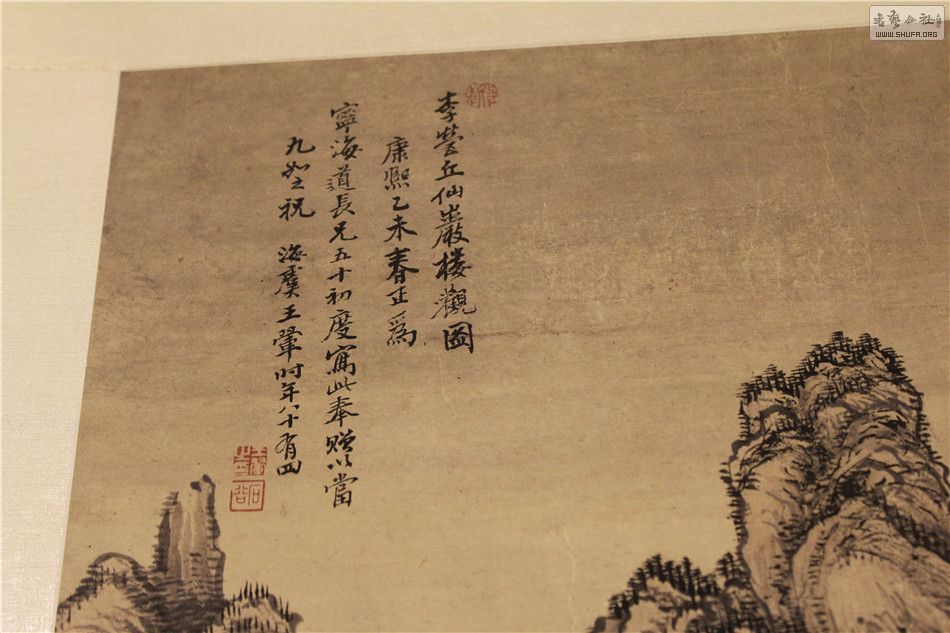 李營丘仙巖樓觀圖
康熙乙未春正爲
寧海道長兄五十初度寫此奉贈以當
九如之祝 海虞王翬時年八十有四
王翬之印
石谷
WWW.SHUFA.ORG